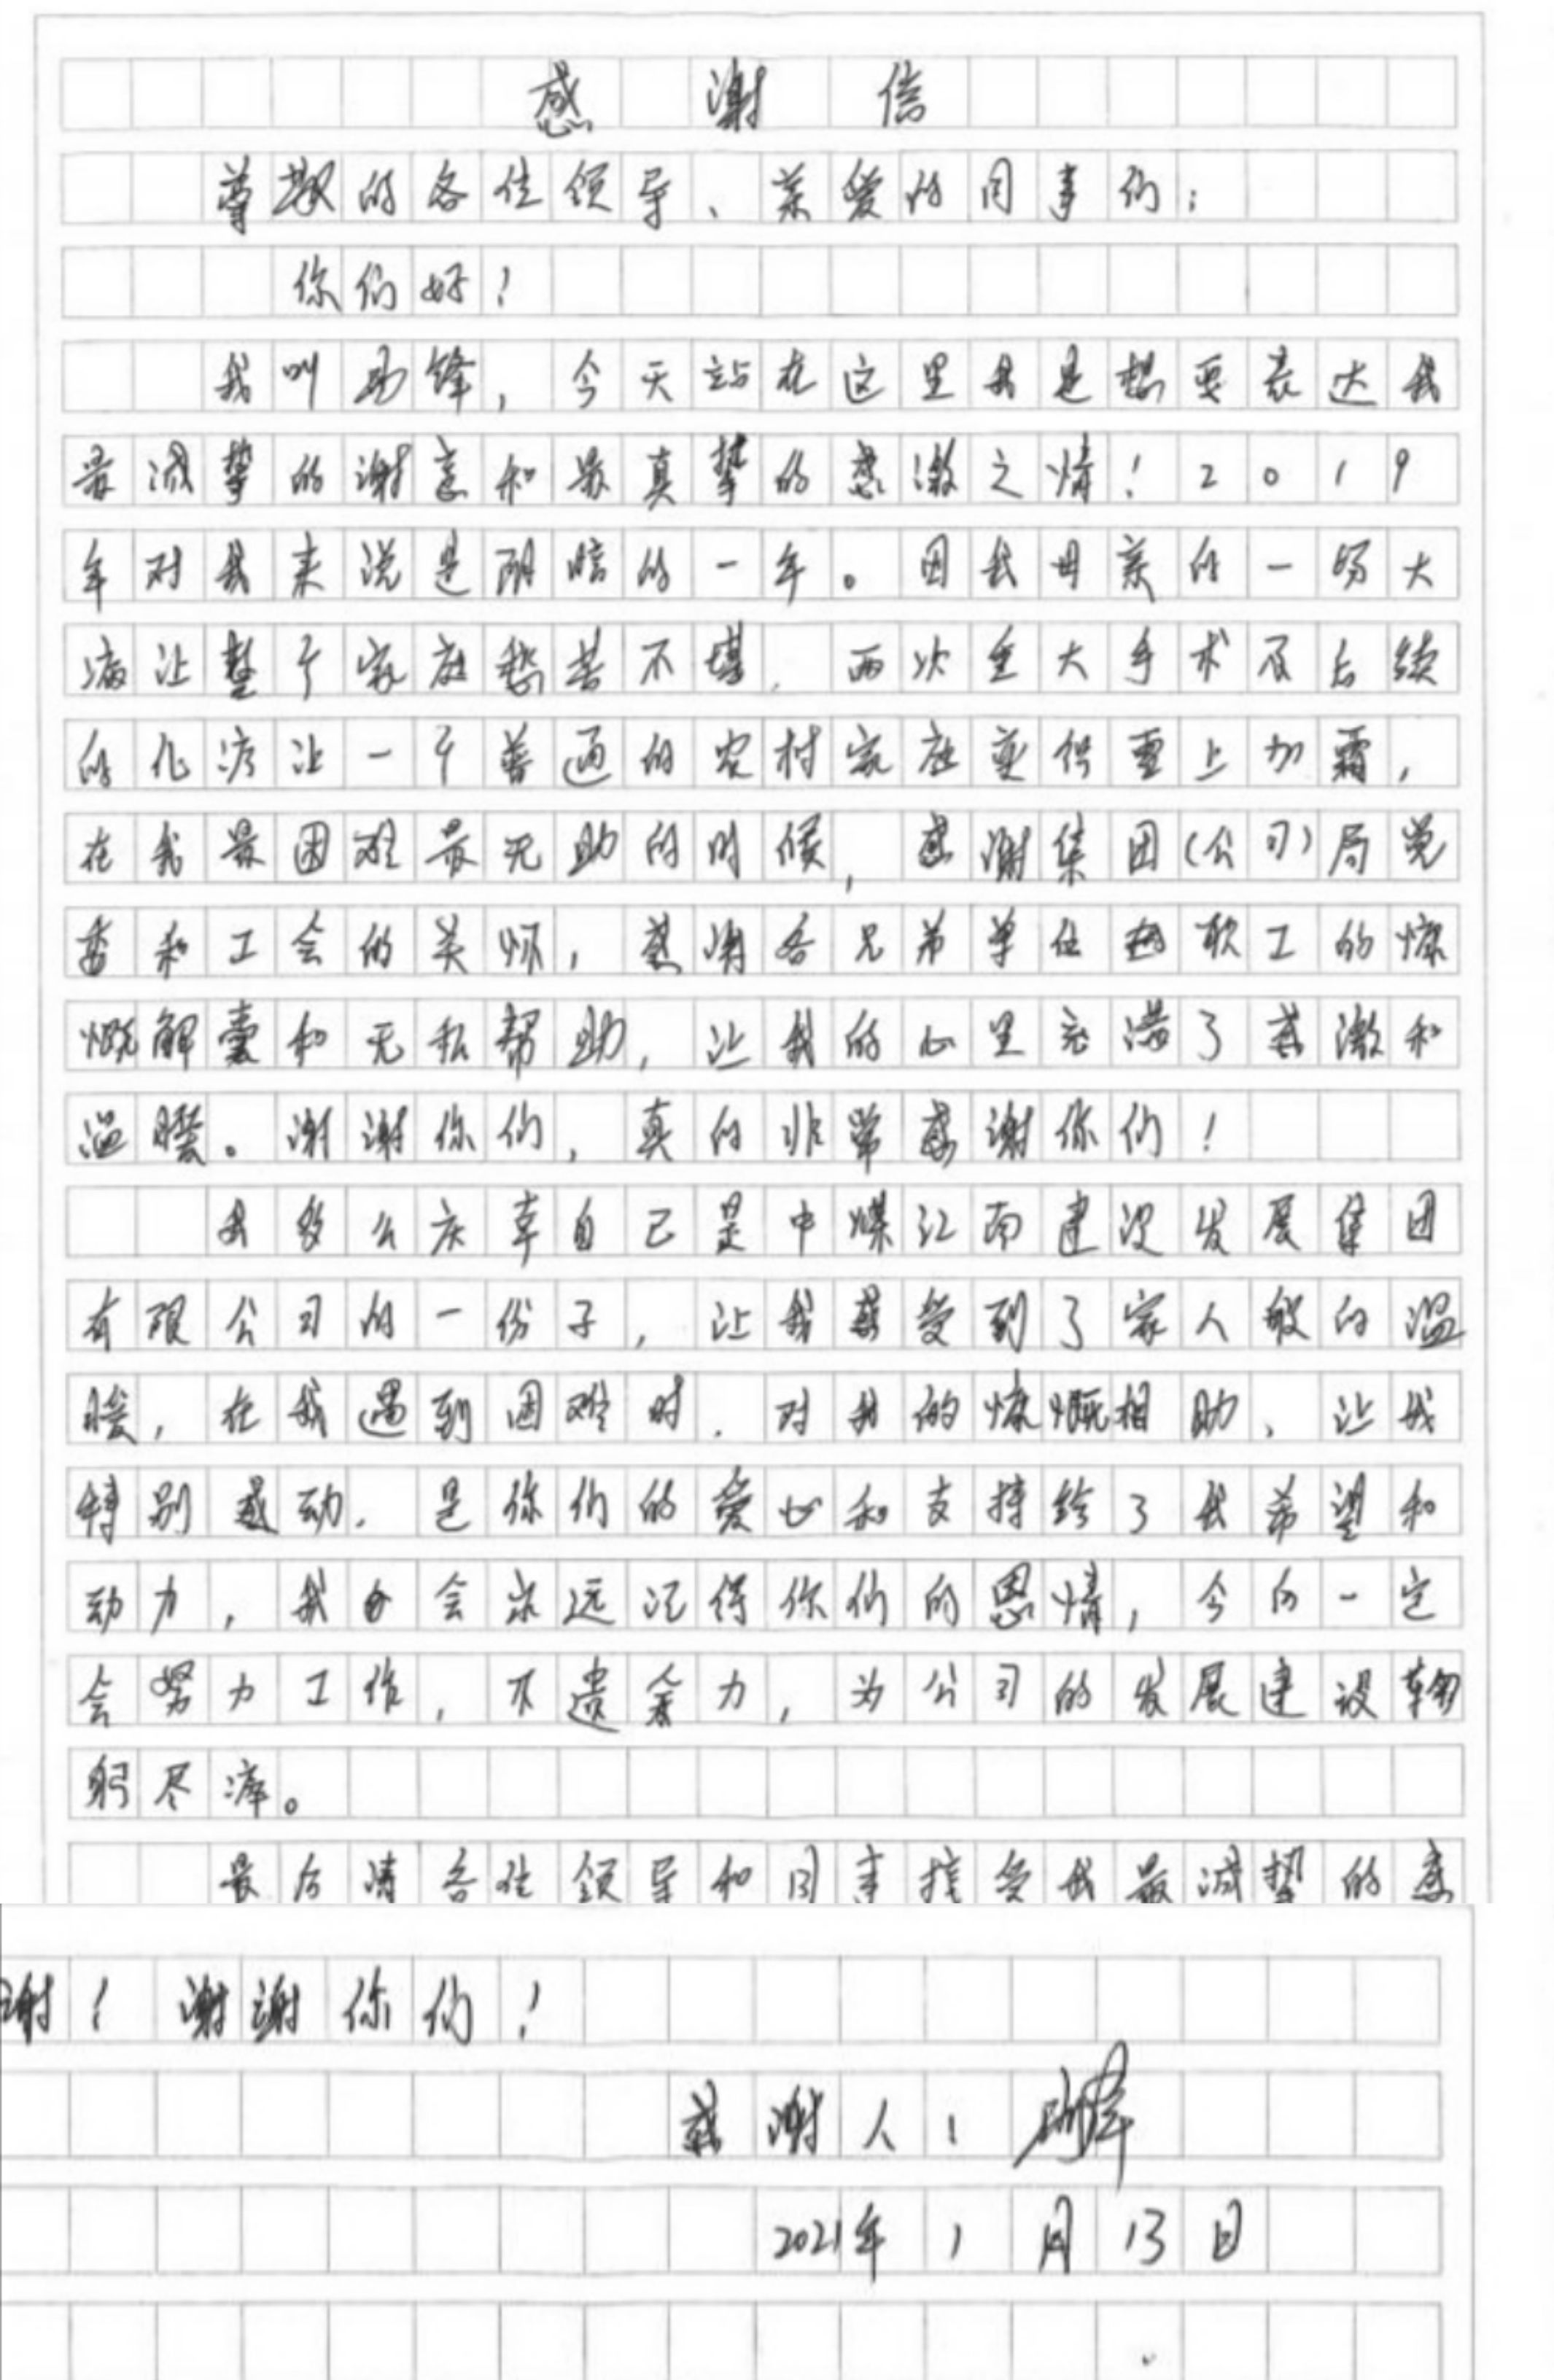 感谢信
尊敬的各位领导、亲爱的同事们：
你们好！
我叫孙锋，今天站在这里我是想要表达我
最诚挚的谢意和最真挚的感激之情！2019
年对我来说是阴暗的一年。因我母亲的一场大
病让整个家庭愁苦不堪，两次重大手术及后续
的化疗让一个普通的农村家庭变得雪上加霜，
在我最困难最无助的时候，感谢集团(公司)局党
委和工会的关怀，感谢各兄弟单位职工的慷
慨解囊和无私帮助，让我的心里充满了感激和
温暖。谢谢你们，真的非常感谢你们！
我多么庆幸自己是中煤江南建设发展集团
有限公司的一份子，让我感受到了家人般的温
暖，在我遇到困难时，对我的慷慨相助，让我
特别感动，是你们的爱心和支持给了我希望和
动力，我会永远记得你们的恩情，今后一定
会努力工作，不遗余力，为公司的发展建设鞠
躬尽瘁。
最后请各位领导和同事接受我最诚挚的感
谢！谢谢你们！
感谢人：
2021年1月13日